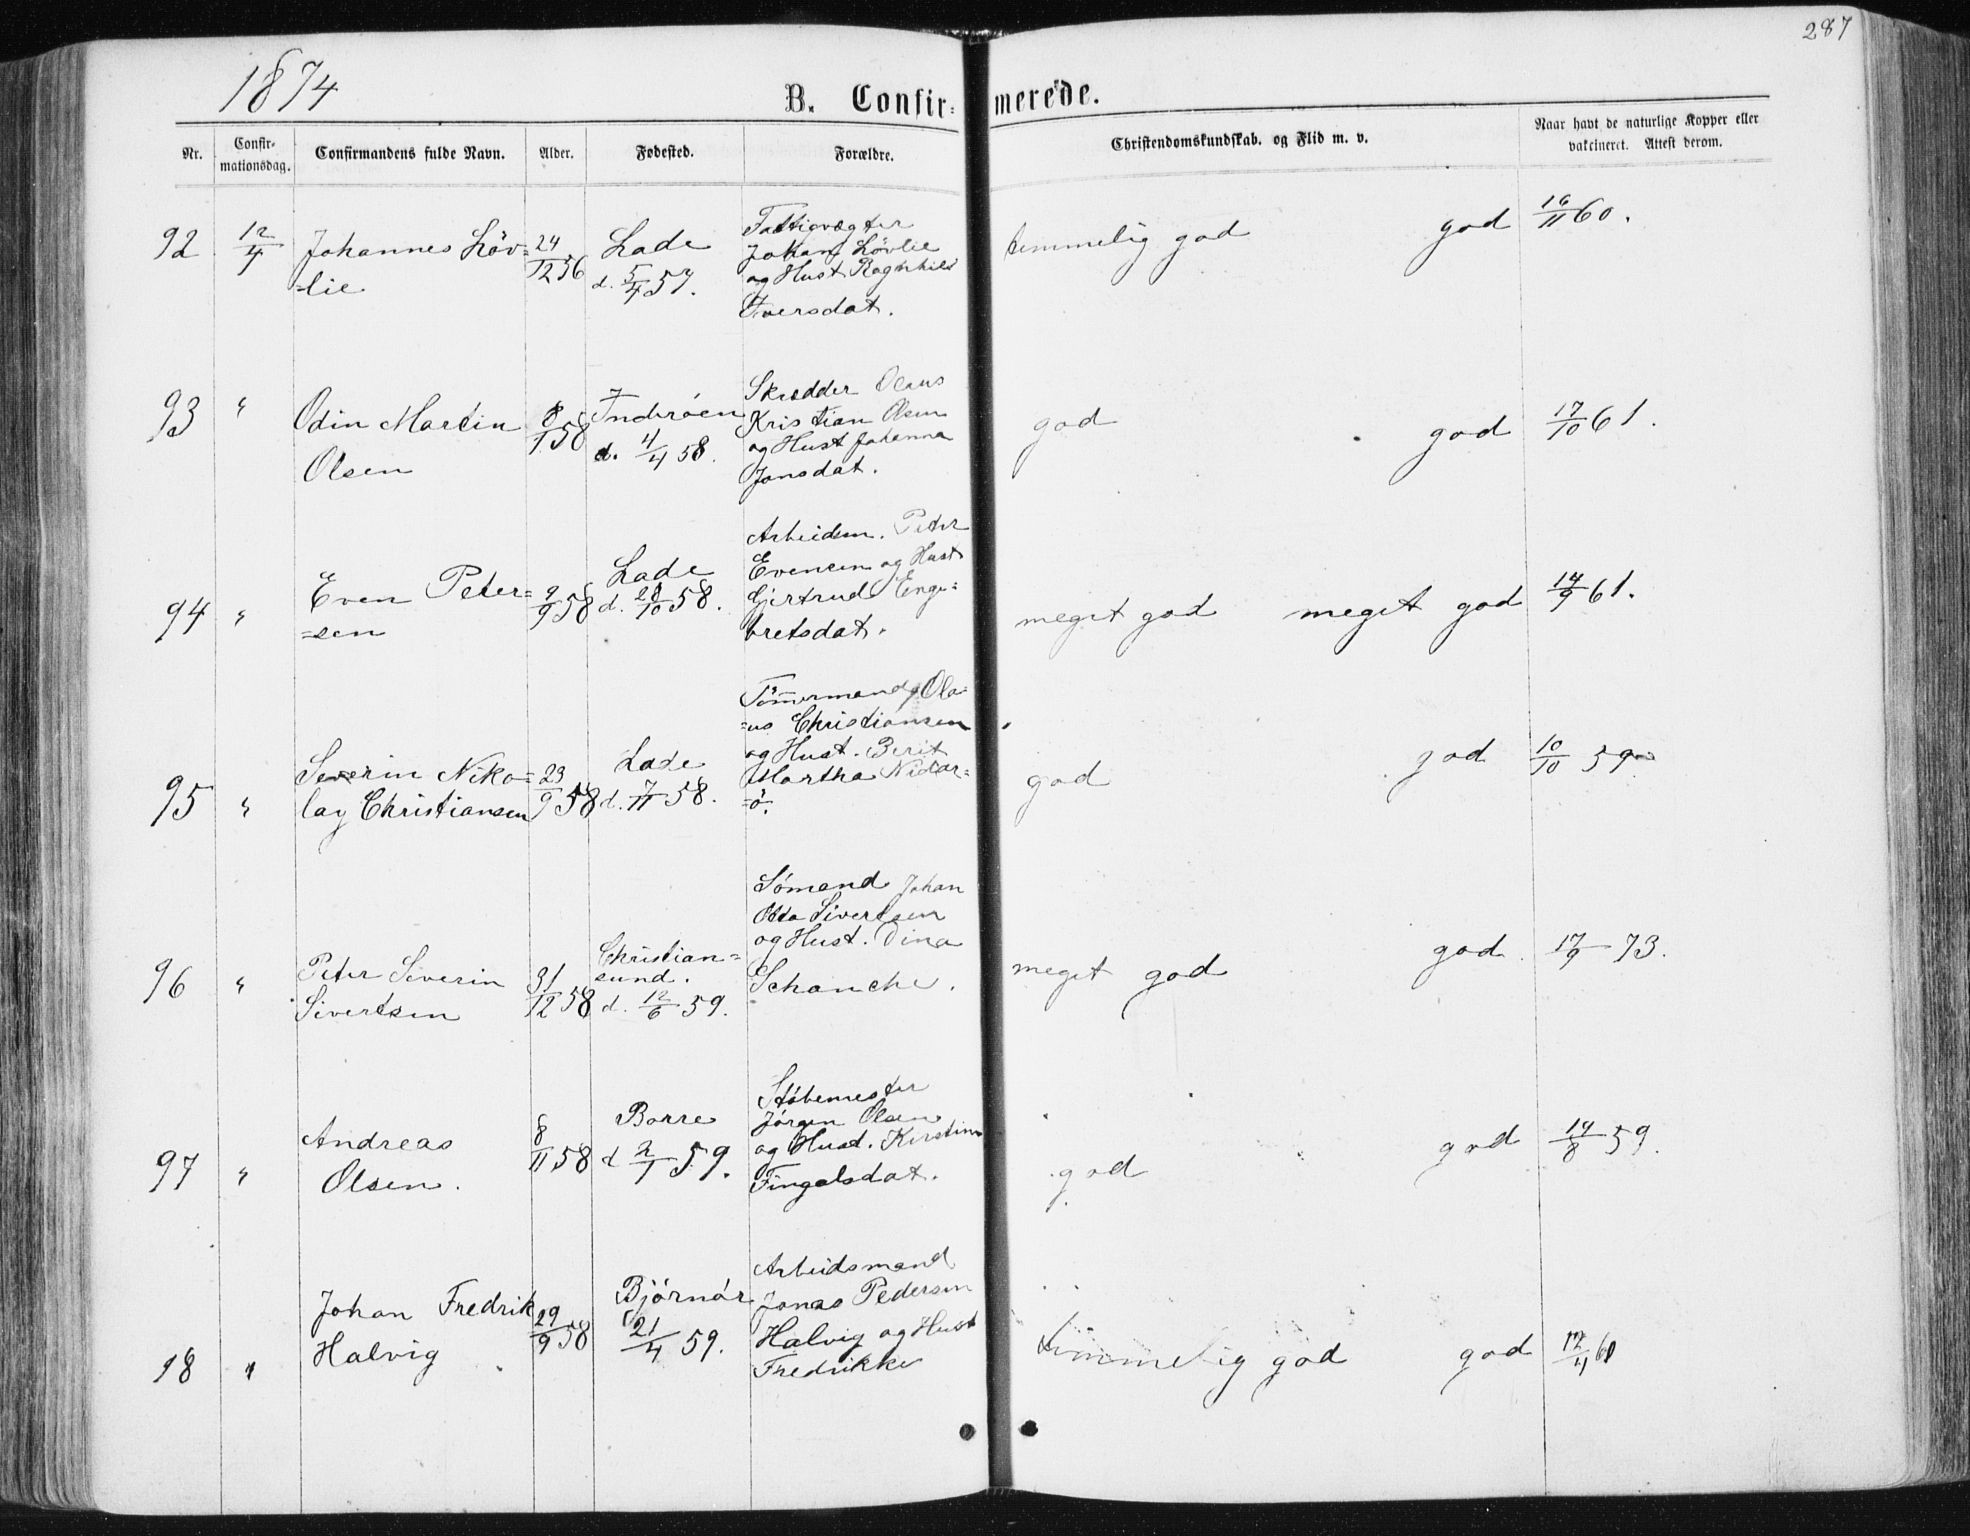 287
1874
B. Confir- merede.
Nr.
Confir-
mationsdag.
Confirmandens fulde Navn.
Alder.
Fødested.
Forældre.
Christendomskundskab. og Flid m. v.
Naar havt de naturlige Kopper eller
vakcineret. Attest derom.
92 12/4 Johannes Löv- 24/12 56 Lade Fattigvægter
=lie d. 5/4 57. Johan Lövlie
og Hust. Raghnhild
Iversdat.
temmelig god god 16/11 60.
93 " Odin Martin 8/1 58 Inderöen Skrædder Olaus
Olsen d. 4/4 58. Kristian Olsen
og Hust Johanna
Jonsdat.
god god 17/10 61.
94 " Even Peter= 9/9 58 Lade Arbeidsm. Peter
=sen d. 28/10 58. Evensen og Hust
Gjertrud Enge=
bretsdat.
meget god meget god 14/9 61.
95 " Severin Niko= 23/9 58 Lade Tömmermand Ola=
lay Christiansen d. 7/11 58. =us Christiansen
og Hust. Berit
Martha Nidar=
=ö.
god god 10/10 59
96 " Peter Severin 31/12 58 Christian= Sömand Johan
Sivertsen sund. Otto Sivertsen
d. 12/6 59. og Hust. Dina
Schanche.
meget god god 17/9 73.
97 " Andreas 8/11 58 Borre Stöbemester
Olsen. d 2/1 59. Jörgen Olsen
og Hust. Kirstine
Fingalsdat.
god god 14/8 59.
98 " Johan Fredrik 29/9 58 Björnör Arbeidsmand
Halvig 21/4 59. Jonas Pedersen
Halvig og Hust
Fredrikke
temmelig god god 12/4 60